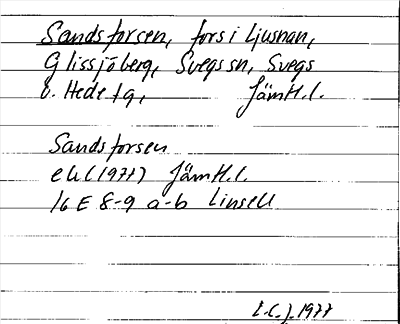 Sandsforsen, fors i Ljusnan,
Glissjöberg, Svegs sn, Svegs
o. Hede tg, Jämtl. l.
Sandsforsen
ek (1977) Jämtl. l.
16 E 8-9 a-b Linsell
1977